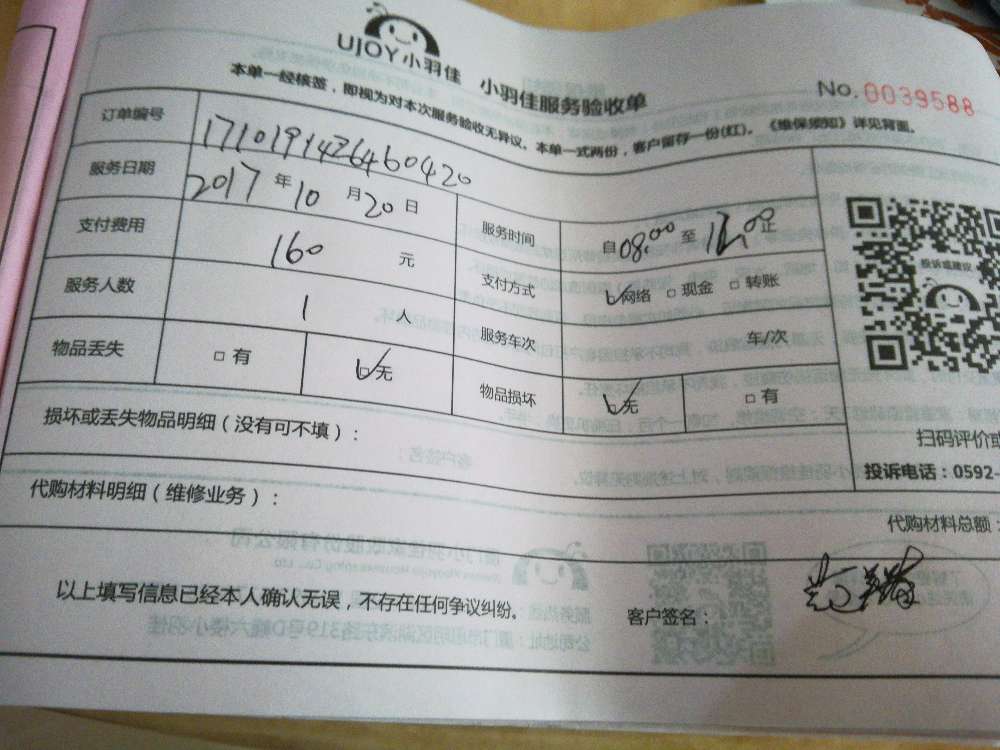 UJOY小羽佳 小羽佳服务验收单
No. 0039588
本单一经核签，即视为对本次服务验收无异议。本单一式两份，客户留存一份(红)。《维保须知》详见背面。
订单编号 1710191426460420
服务日期 2017年10月20日 服务时间 自08:00至12:00止
支付费用 160元 支付方式 网络 □现金 □转账
服务人数 1人 服务车次 车/次
物品丢失 □有 无 物品损坏 无 □有
投诉或建议
损坏或丢失物品明细（没有可不填）：
扫码评价或
投诉电话：0592-
代购材料明细（维修业务）：
代购材料总额：
以上填写信息已经本人确认无误，不存在任何争议纠纷。
客户签名：